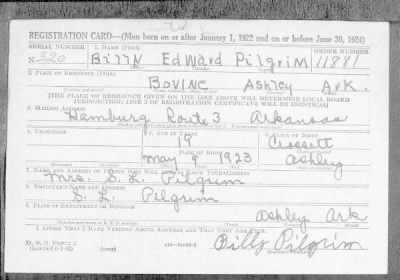 REGISTRATION CARD—(Men born on or after January 1, 1922 and on or before June 30, 1924)
SERIAL NUMBER 1. NAME (Print) ORDER NUMBER
N 320 Billy Edward Pilgrim 11881
2. PLACE OF RESIDENCE (Print)
Bovine Ashley Ark.
[THE PLACE OF RESIDENCE GIVEN ON THE LINE ABOVE WILL DETERMINE LOCAL BOARD
JURISDICTION; LINE 2 OF REGISTRATION CERTIFICATE WILL BE IDENTICAL]
3. MAILING ADDRESS
Hamburg Route 3 Arkansas
4. TELEPHONE 5. AGE IN YEARS 6. PLACE OF BIRTH
19 Crossett
DATE OF BIRTH
May 9 1923 Ashley
7. NAME AND ADDRESS OF PERSON WHO WILL ALWAYS KNOW YOUR ADDRESS
Mrs. S. L. Pilgrim
8. EMPLOYER'S NAME AND ADDRESS
S. L. Pilgrim
9. PLACE OF EMPLOYMENT OR BUSINESS
Ashley Ark
I AFFIRM THAT I HAVE VERIFIED ABOVE ANSWERS AND THAT THEY ARE TRUE.
D. S. S. FORM 1 (over) Billy Pilgrim